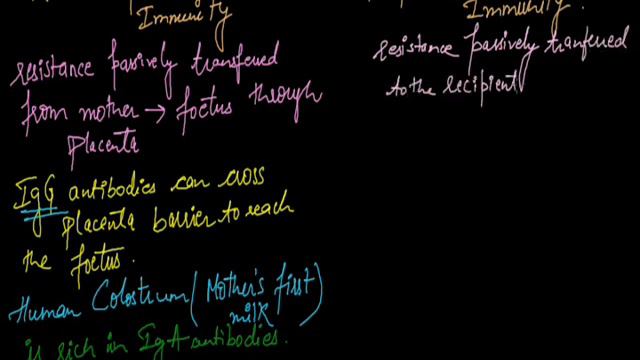 Immunity
resistance passively transferred
from mother → foetus through
placenta
IgG antibodies can cross
placenta barrier to reach
the foetus.
Human Colostrum (Mother's first
milk)
is rich in IgA antibodies.
Immunity.
resistance passively tranferred
to the recipient